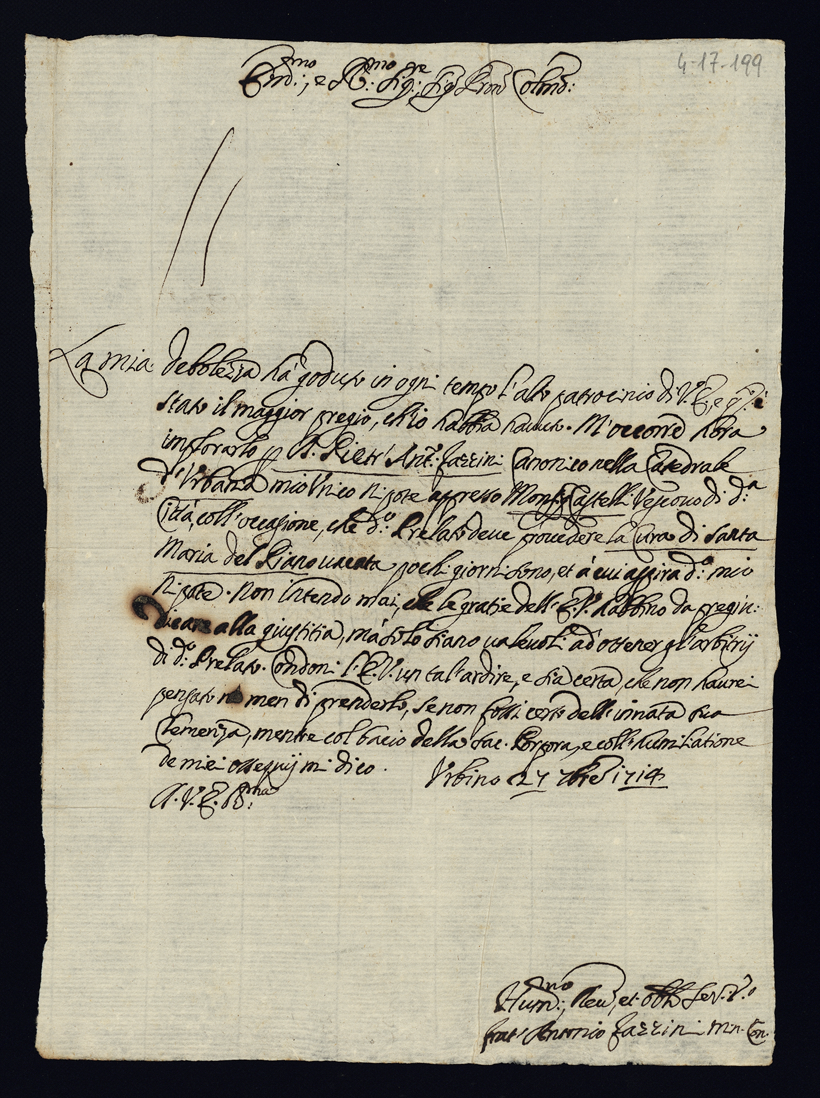 4-17-199
Em.mo: e R.mo: Sig.re, Sig. Pron Colmo:
La mia debolezza hà goduto in ogni tempo l'alto patrocinio di V. E., e
stato il maggior pregio, ch'io habbia havuto. M'occorre hora
implorarlo p Pietr'Ant.o Fazzini Canonico nella Catedrale
d'Urbania mio Unico Nipote appresso Mons. Castelli Vescovo di d.a
Città, coll'occasione, che d.o Prelato deve provedere la Cura di Santa
Maria del Piano vacata pochi giorni sono, et à cui aspira d.o mio
Nipote. Non intendo mai, che le gratie dell'E. V. habbino da pregiu:
dicare alla giustitia, mà solo siano valevoli ad ottener gl'arbitrij
di d.o Prelato. Condoni l'E. V. un tal'ardire, e sia certa, che non havrei
pensato nemen di prenderlo, se non fossi certo dell'innata sua
Clemenza, mentre col bacio della Sac. Porpora, e coll'humiliatione
de miei ossequij mi dico. Urbino 27 7bre 1714
A. V. E. R.ma:
Hum.mo:, Rev, et Obb Ser.
frat' Antonio Fazzini Mn. Con.